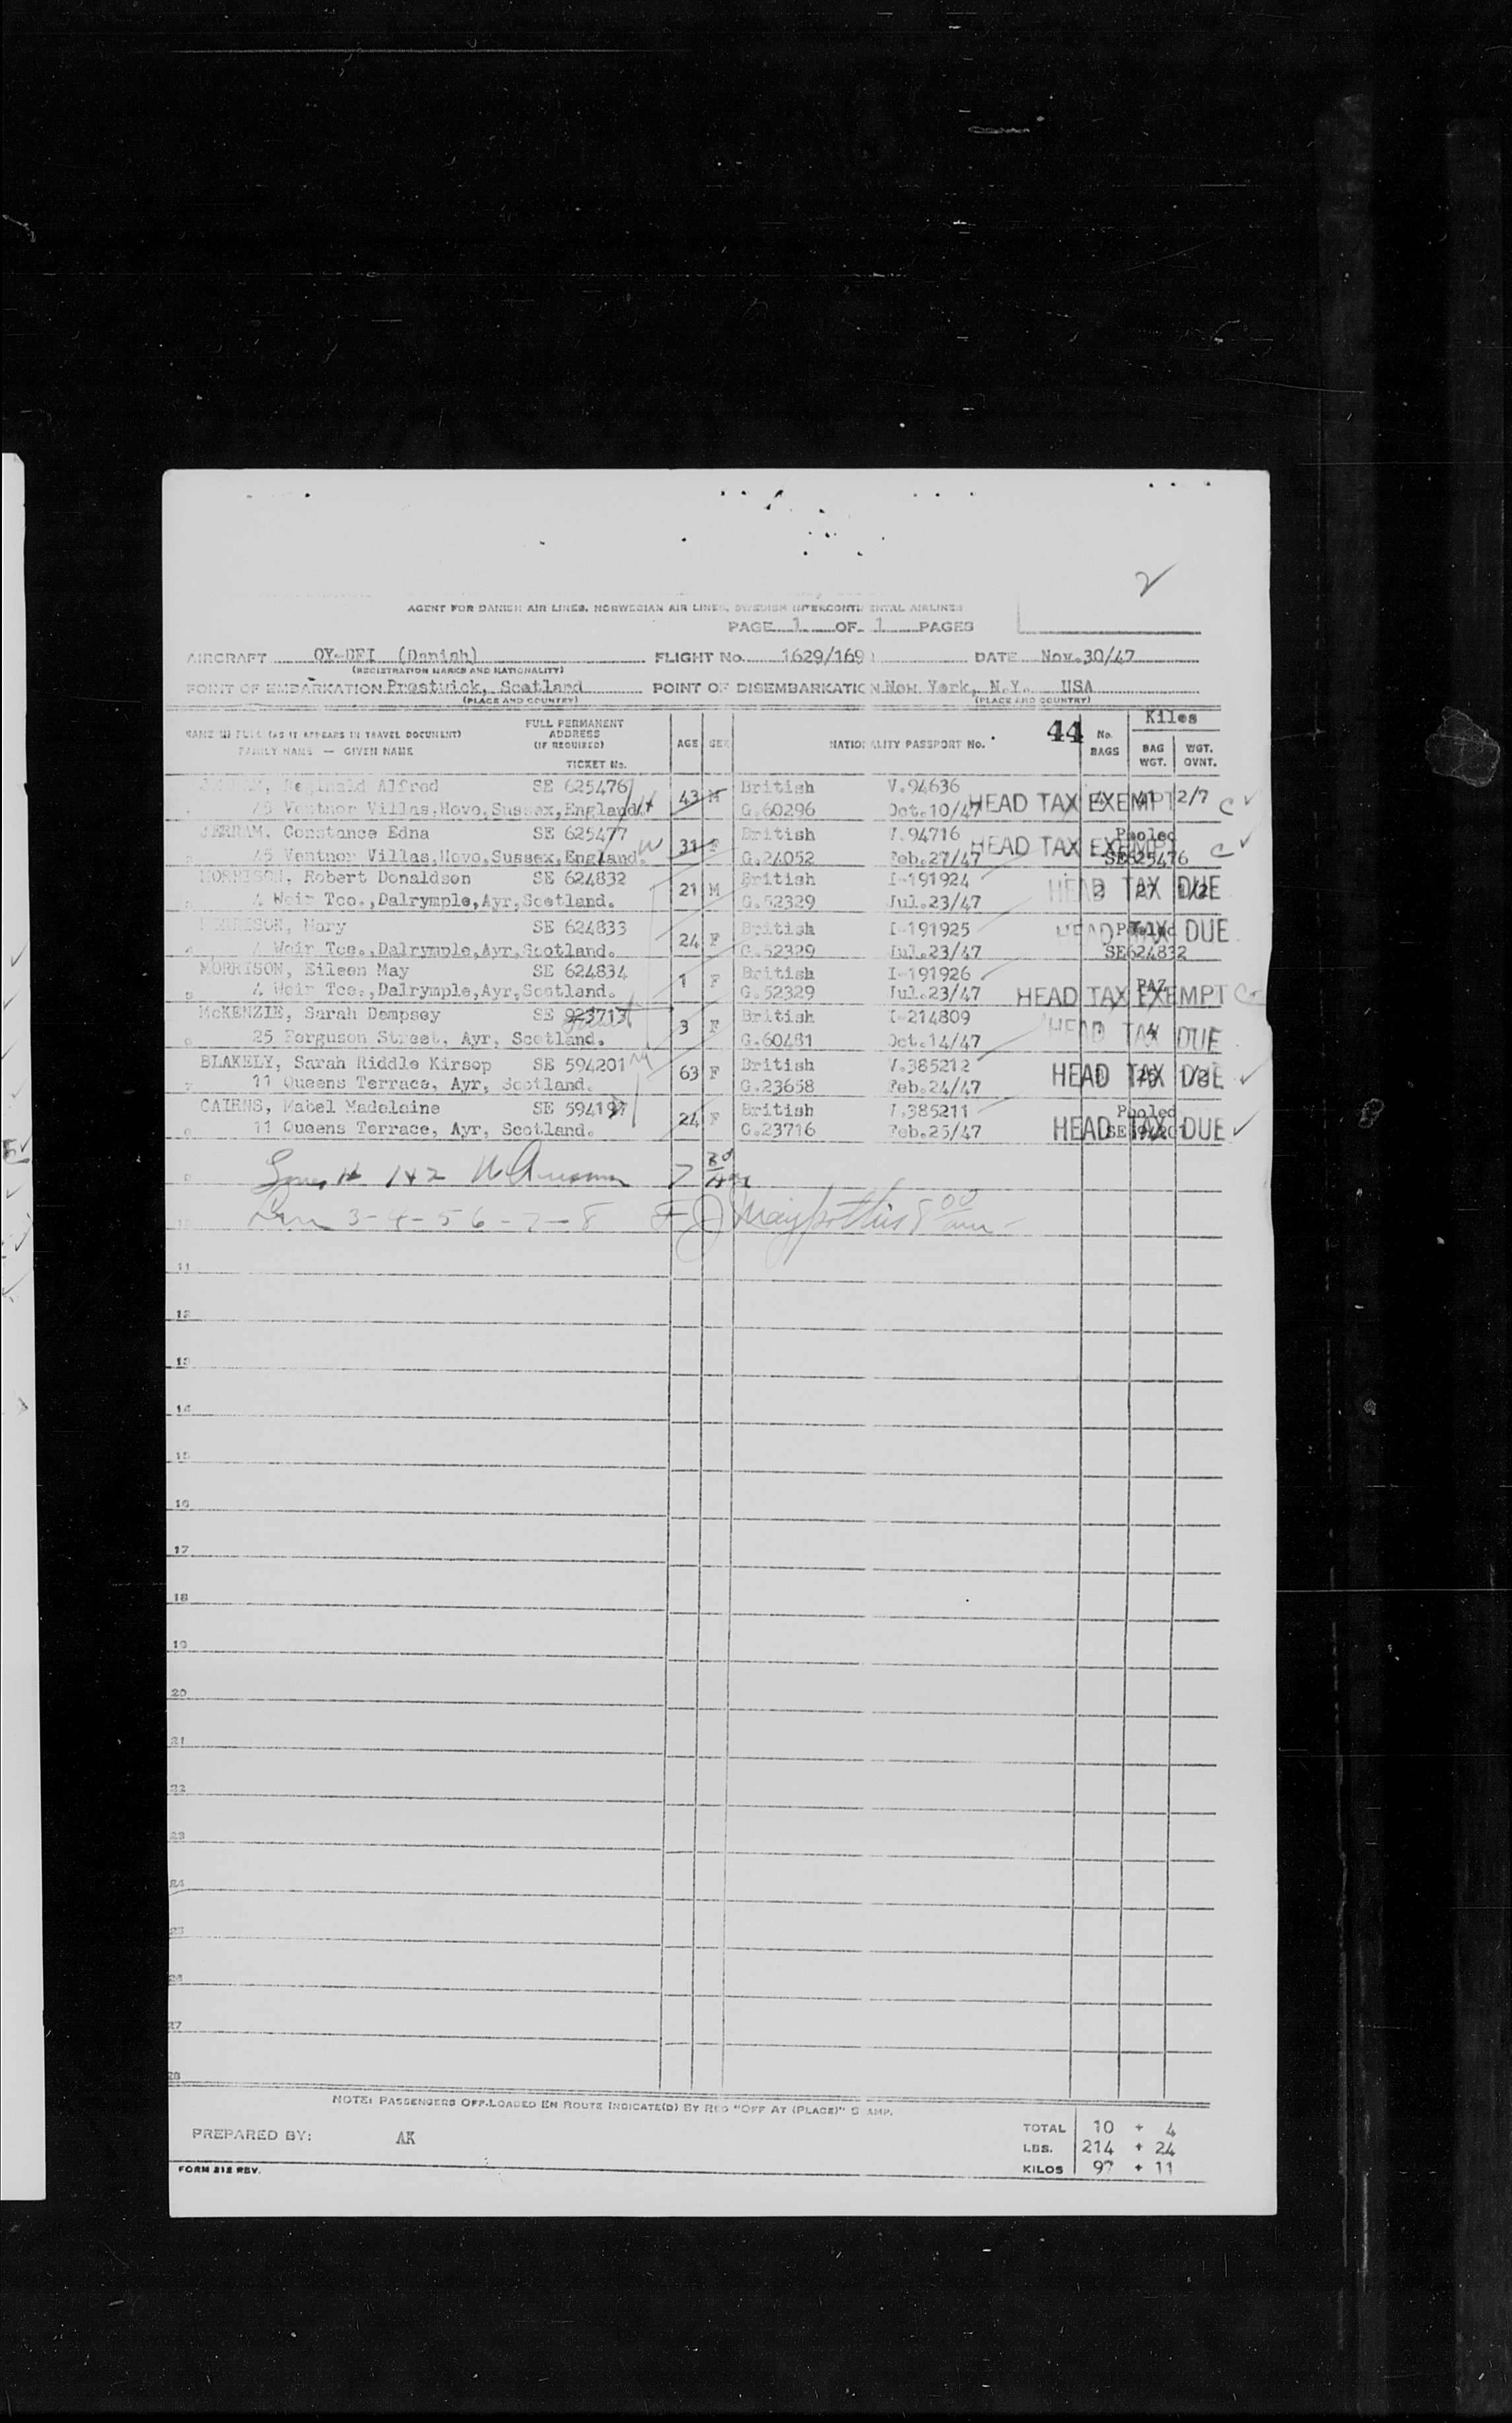 2
AGENT FOR DANISH AIR LINES, NORWEGIAN AIR LINES, SWEDISH INTERCONTINENTAL AIRLINES
PAGE 1 OF 1 PAGES
AIRCRAFT OY-DFI (Danish) FLIGHT No. 1629/169 DATE Nov.30/47
(REGISTRATION MARKS AND NATIONALITY)
POINT OF EMBARKATION Prestwick, Scotland POINT OF DISEMBARKATION New York, N.Y. USA
(PLACE AND COUNTRY) (PLACE AND COUNTRY)
Kilos
NAME IN FULL (AS IT APPEARS IN TRAVEL DOCUMENT) FULL PERMANENT ADDRESS (IF REQUIRED) AGE SEX NATIONALITY PASSPORT No. 44 No. BAGS BAG WGT. WGT. OVNT.
FAMILY NAME — GIVEN NAME TICKET No.
Reginald Alfred SE 625476 43 M British V.94636
45 Ventnor Villas,Hove,Sussex,England. G.60296 Oct.10/47 HEAD TAX EXEMPT 2/7 C
JERRAM, Constance Edna SE 625477 31 F British V.94716 Pooled
45 Ventnor Villas,Hove,Sussex,England. G.24052 Feb.27/47 HEAD TAX EXEMPT SE625476 C
MORRISON, Robert Donaldson SE 624832 21 M British I-191924
4 Weir Tce.,Dalrymple,Ayr,Scotland. G.52329 Jul.23/47 HEAD TAX DUE
MORRISON, Mary SE 624833 24 F British I-191925 Pooled
4 Weir Tce.,Dalrymple,Ayr,Scotland. G.52329 Jul.23/47 HEAD TAX DUE SE624832
MORRISON, Eileen May SE 624834 1 F British I-191926
4 Weir Tce.,Dalrymple,Ayr,Scotland. G.52329 Jul.23/47 HEAD TAX EXEMPT C
McKENZIE, Sarah Dempsey SE 923713 3 F British I-214809
25 Ferguson Street, Ayr, Scotland. G.60481 Oct.14/47 HEAD TAX DUE
BLAKELY, Sarah Riddle Kirsop SE 594201 63 F British V.385212
11 Queens Terrace, Ayr, Scotland. G.23658 Feb.24/47 HEAD TAX DUE
CAIRNS, Mabel Madeleine SE 594197 24 F British V.385211 Pooled
11 Queens Terrace, Ayr, Scotland. G.23716 Feb.25/47 HEAD TAX DUE
1+2 7 30
3-4-5 6-7-8 8 00
11
12
13
14
15
16
17
18
19
20
21
22
23
24
25
26
27
28
NOTE: PASSENGERS OFF-LOADED EN ROUTE INDICATE(D) BY RED "OFF AT (PLACE)" S AMP.
PREPARED BY: AK
TOTAL 10 + 4
LBS. 214 + 24
KILOS 97 + 11
FORM 212 REV.